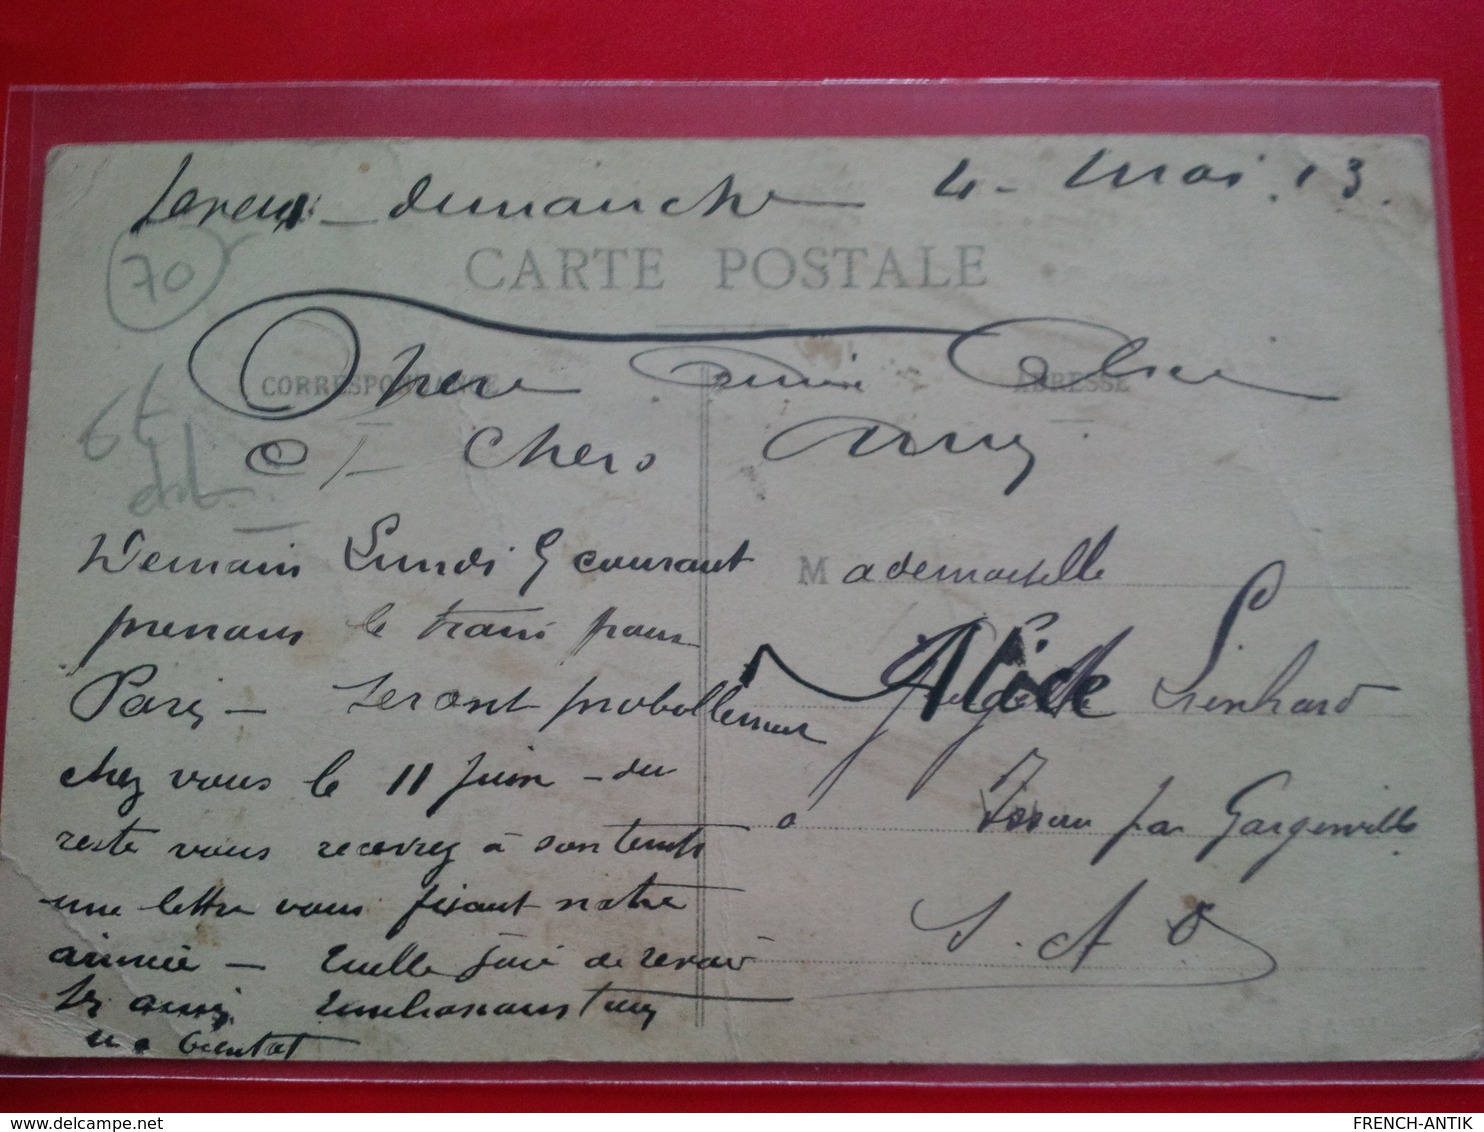 dimanche 4 - Mai 13.
70
CARTE POSTALE
CORRESPONDANCE
ADRESSE
Chere Amie Alice
et Chers Amis
Demain Lundi 5 courant
prenons le train pour
Paris - seront probablement
chez vous le 11 Juin - du
reste vous recevrez à son temps
une lettre vous fixant notre
arrivée - quelle joie de revoir
ses amis embrassons tous
et a bientot
Mademoiselle
Alice Linhard
à Issou par Gargenville
S. et O
FRENCH-ANTIK
delcampe.net